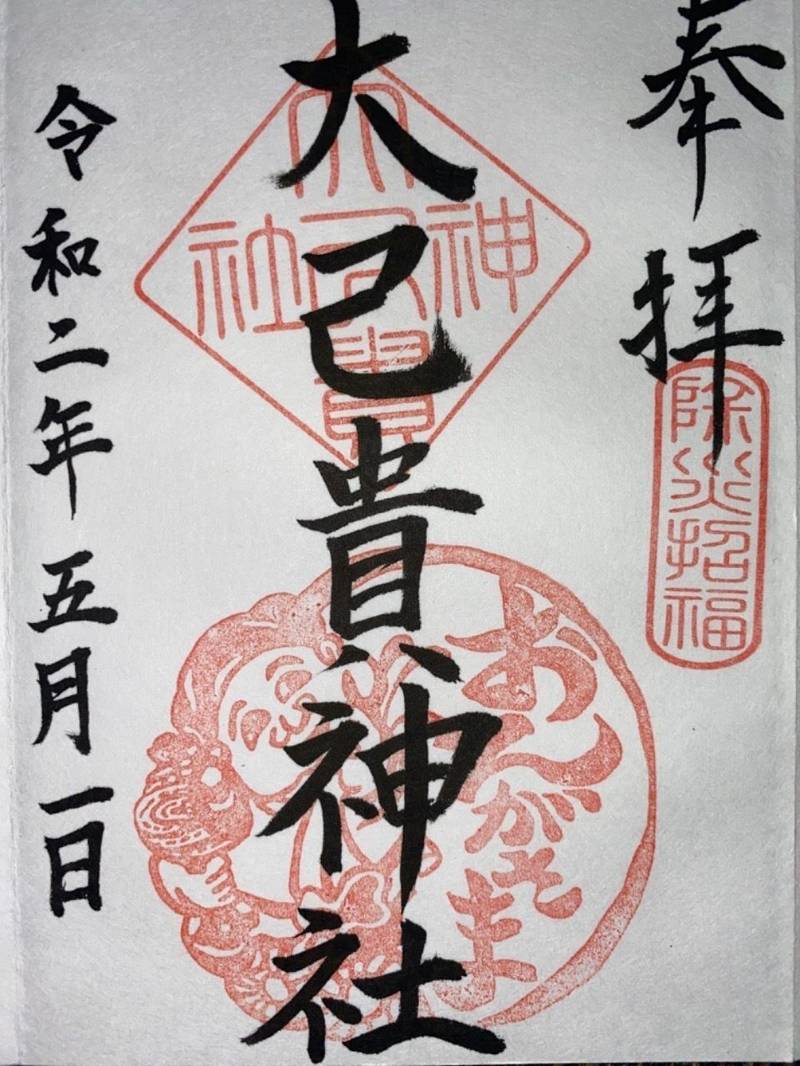 奉拝
除災招福
大己貴神社
大己貴神社
おんがさま
令和二年五月一日